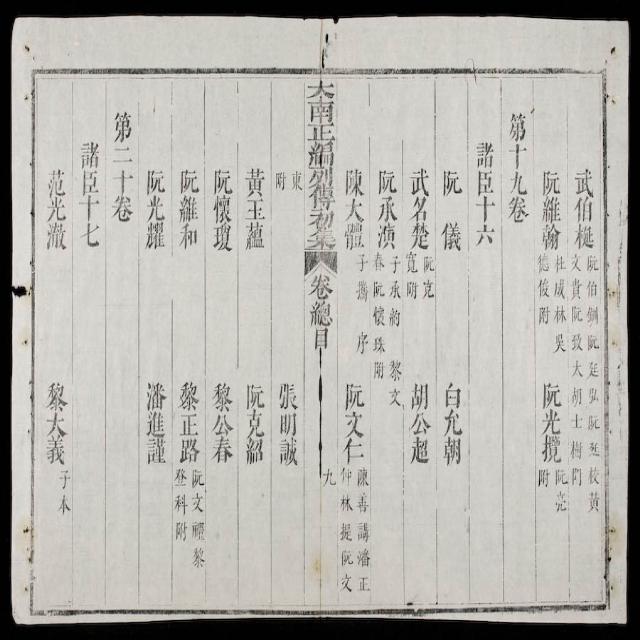 武伯梃 阮伯鉶阮廷弘阮廷校黃
文貴阮致大胡士梅門
阮維翰 杜威林吳
德俊附 阮光攬 阮亮
附
第十九卷
諸臣十六
阮儀 白允朝
武名楚 阮克
寬附 胡公超
阮承演 子承約 黎文
春阮懷珠附
陳大體 子 序 阮文仁 陳善講潘正
仲林提阮文
九
大南正編列傳初集 卷總目
東
附 張明誠
黃玉蘊 阮克紹
阮懷瓊 黎公春
阮維和 黎正路 阮文禮黎
登科附
阮光耀 潘進謹
第二十卷
諸臣十七
范光澈 黎大義 子本